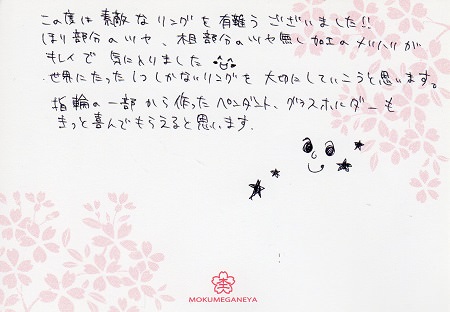 この度は素敵なリングを有難うございました!!
ほり部分のツヤ、木目部分のツヤ無し加工のメリハリが
キレイで気に入りました
世界にたった1つしかないリングを大切にしていこうと思います。
指輪の一部から作ったペンダント、グラスホルダーも
きっと喜んでもらえると思います.
MOKUMEGANEYA